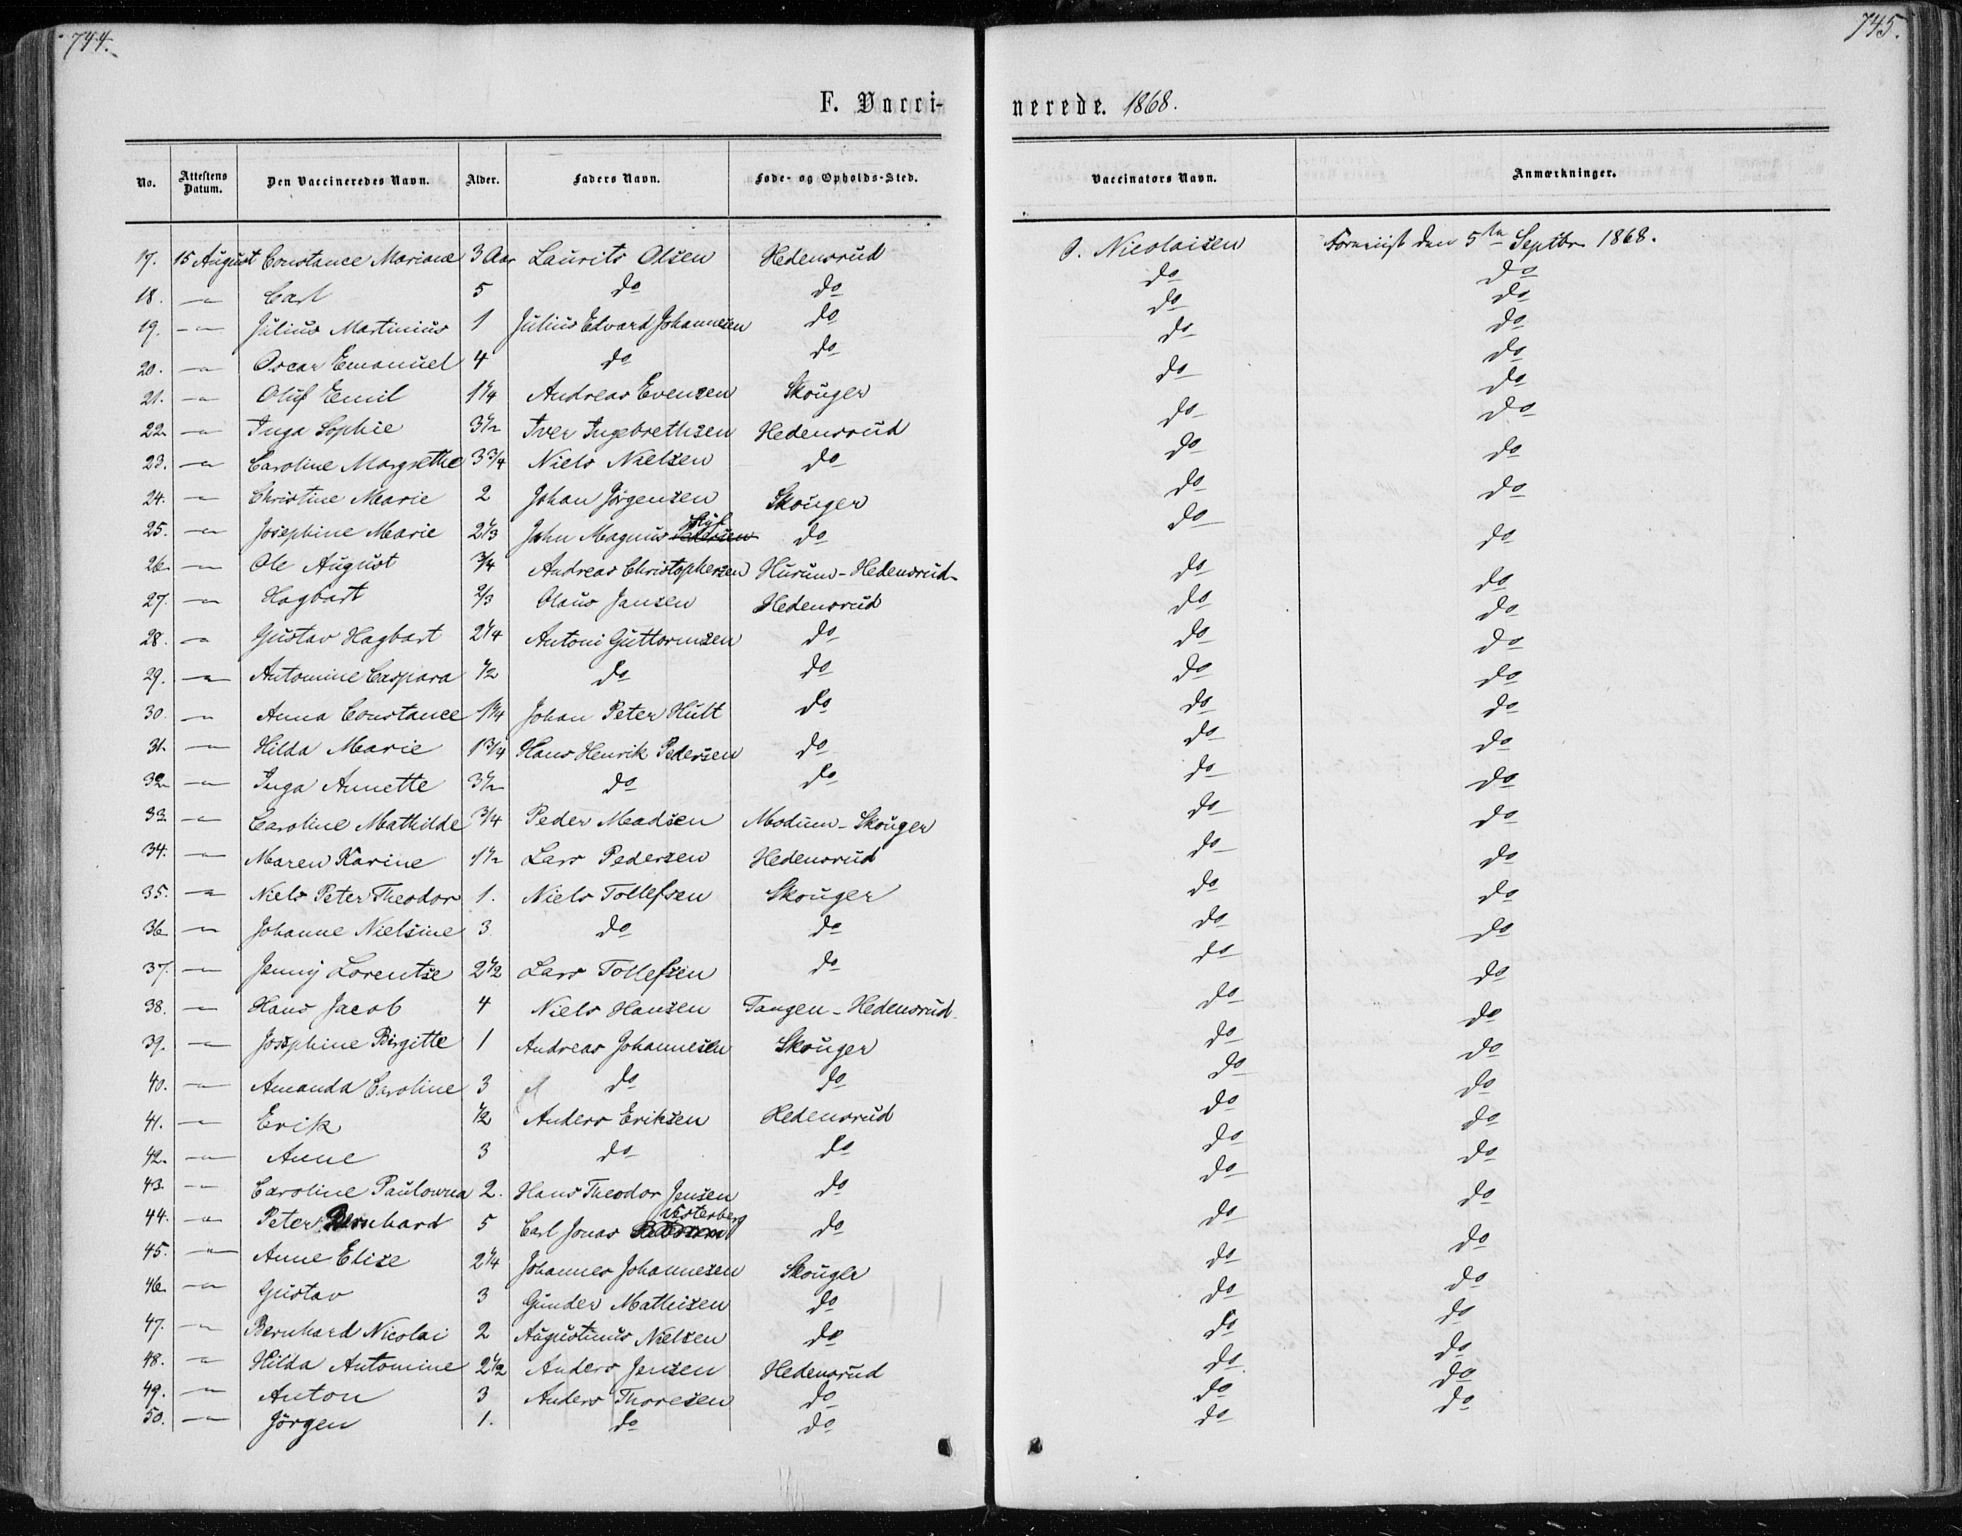 744.
745.
F. Vacci-
nerede. 1868.
No. Attestens Datum. Den Vaccineredes Navn. Alder. Faders Navn. Føde- og Opholds-Sted. Vaccinators Navn. Anmærkninger.
17. 15 August Constance Mariane 3 Aar Laurits Olsen Hedensrud Nicolaisen den 5te Septbr 1868.
18. — Carl 5 do do do do
19. — Julius Martinius 1 Julius Edvard Johannesen do do do
20. — Oscar Emanuel 4 do do do do
21. — Oluf Emil 1 1/4 Andreas Evensen Skouger do do
22. — Inga Sophie 3 1/2 Iver Ingebrethsen Hedensrud do do
23. — Caroline Margrethe 3 3/4 Niels Nielsen do do do
24. — Christine Marie 2 Johan Jørgensen Skouger do do
25. — Josephine Marie 2 1/3 John Magnus do do do
26. — Ole August 3/4 Andreas Christophersen Hurum - Hedensrud do do
27. — Hagbart 2/3 Olaus Jansen Hedensrud do do
28. — Gustav Hagbart 2 1/4 Antoni Guttormsen do do do
29. — Antomine Caspara 1/2 do do do do
30. — Anna Constance 1 1/4 Johan Peter Hult do do do
31. — Hilda Marie 1 3/4 Hans Henrik Pedersen do do do
32. — Inga Annette 3 1/2 do do do do
33. — Caroline Mathilde 3/4 Peder Madsen Modum - Skouger do do
34. — Maren Karine 1 1/2 Lars Pedersen Hedensrud do do
35. — Niels Peter Theodor 1. Niels Tollefsen Skouger do do
36. — Johanne Nielsine 3. do do do do
37. — Jenny Lorentse 2 1/2 Lars Tollefsen do do do
38. — Hans Jacob 4 Niels Hansen Tangen - Hedensrud. do do
39. — Josephine Birgitte 1 Andreas Johannesen Skouger do do
40. — Amanda Caroline 3 do do do do
41. — Erik 1/2 Anders Eriksen Hedensrud do do
42. — Anne 3 do do do do
43. — Caroline Paulowna 2. Hans Theodor Jensen do do do
44. — Peter Bernhard 5 Carl Jonas Vesterberg do do do
45. — Anne Elise 2 1/4 Johannes Johannesen Skouger do do
46. — Gustav 3 Gunder Mathisen do do do
47. — Bernhard Nicolai 2 Augustinus Nielsen do do do
48. — Hilda Antomine 2 1/2 Anders Jensen Hedensrud do do
49. — Anton 3 Anders Thoresen do do do
50. — Jörgen 1. do do do do